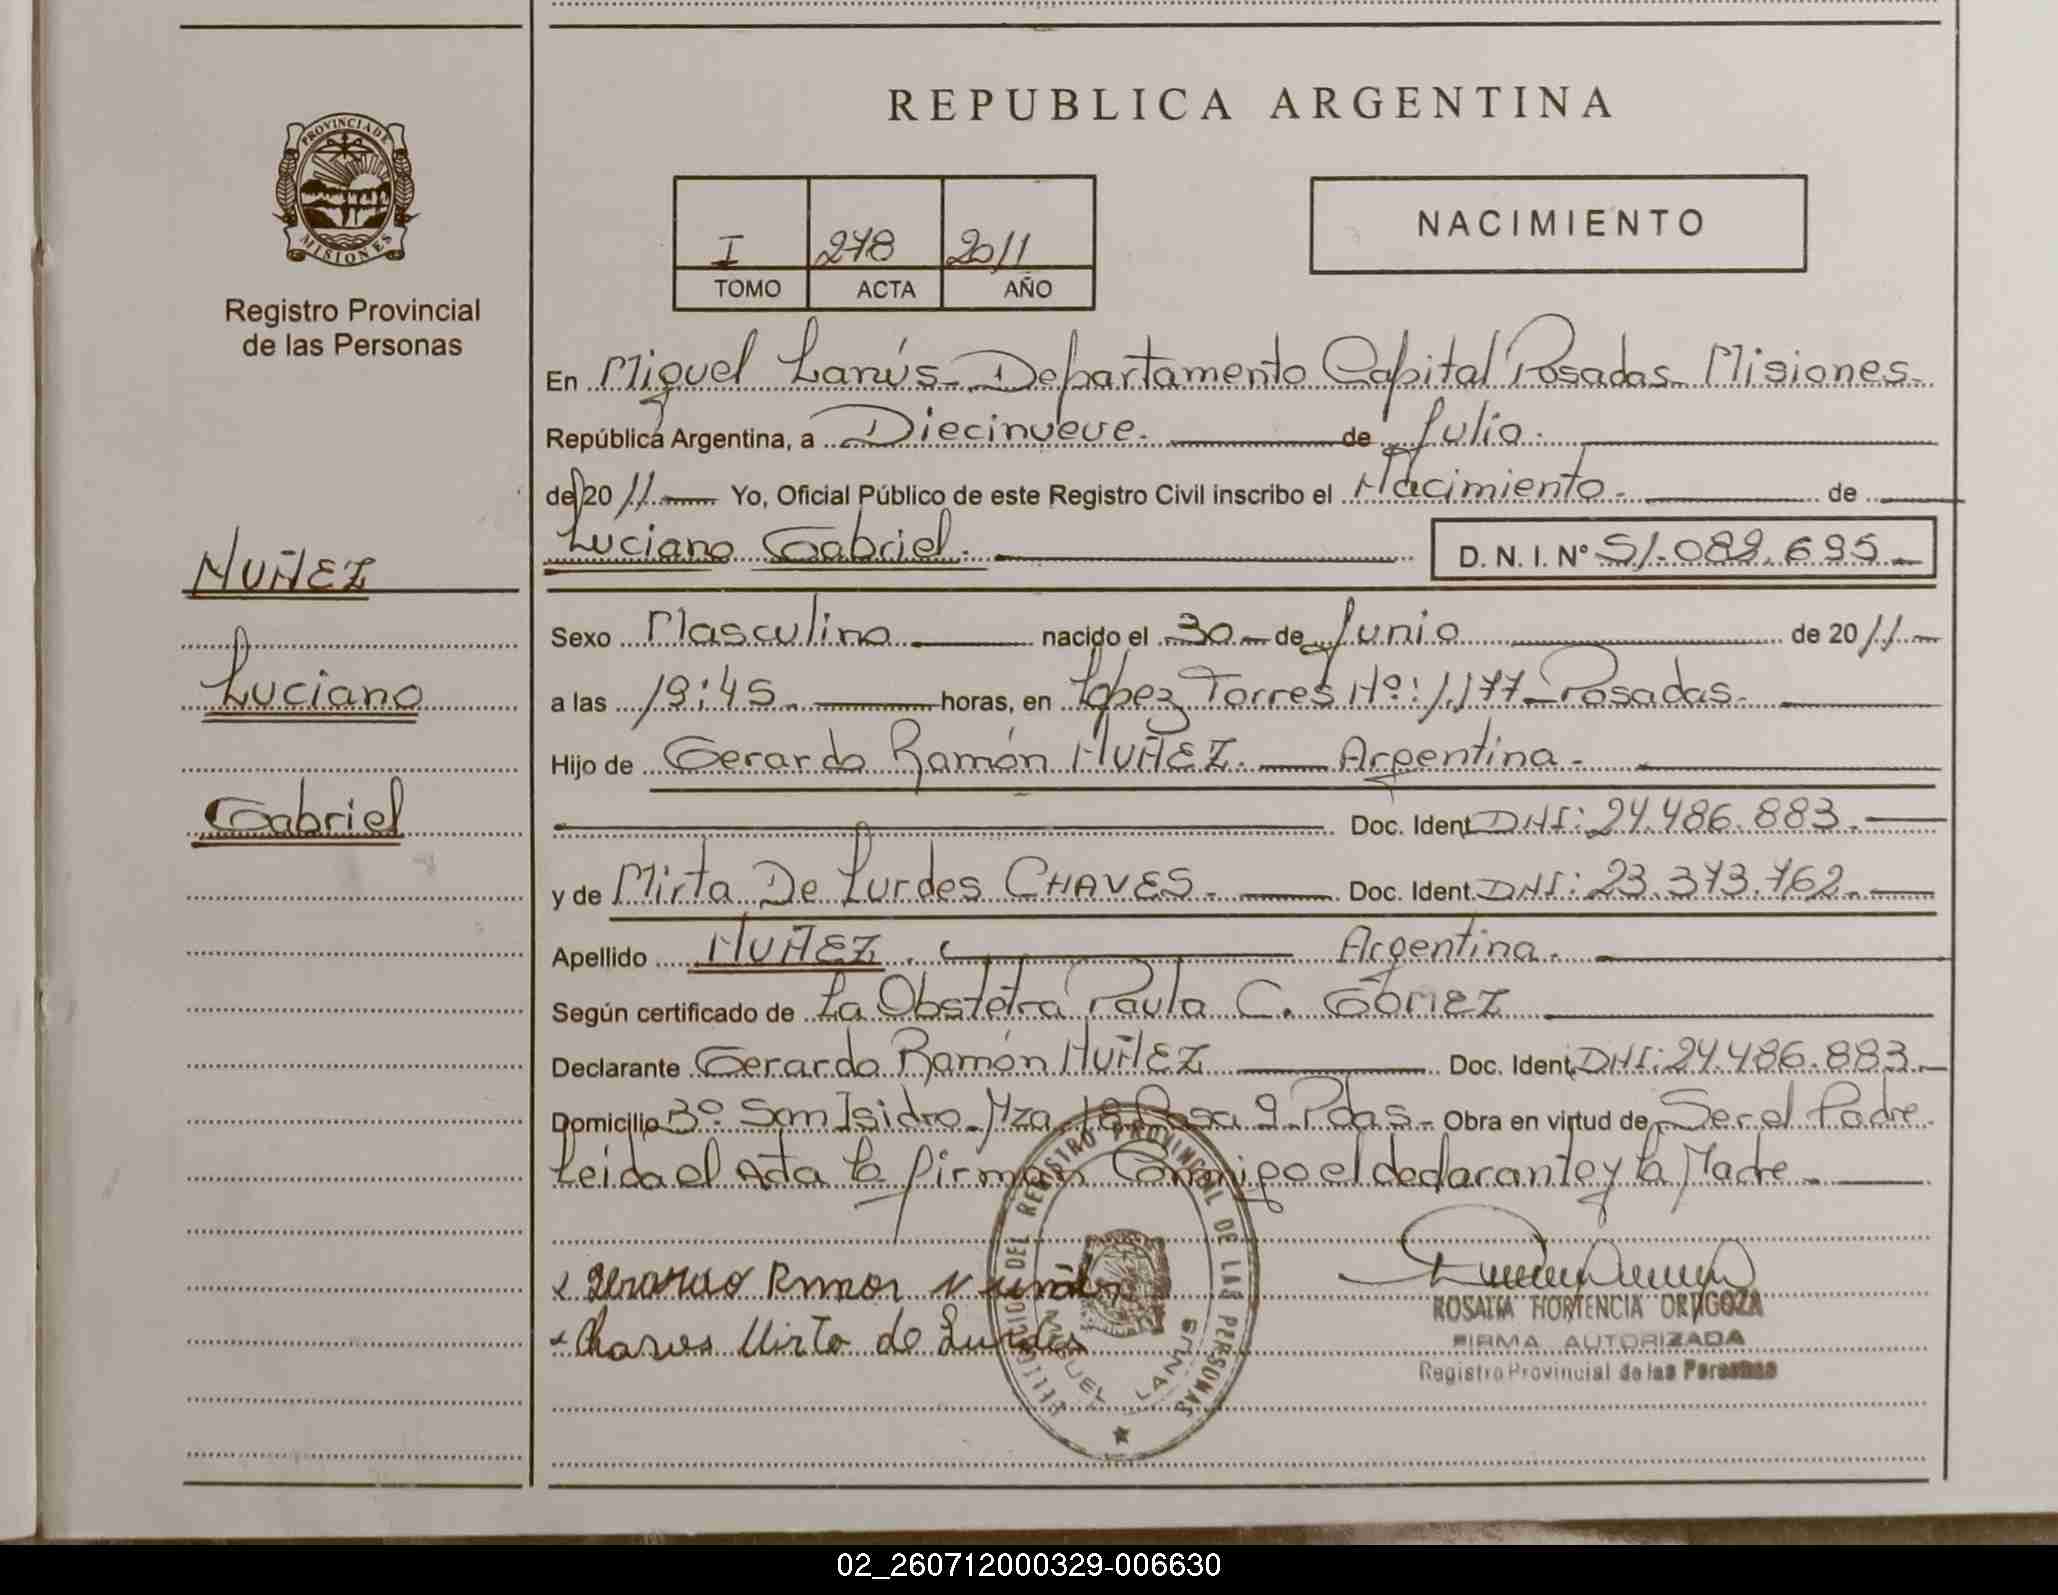 REPUBLICA ARGENTINA
PROVINCIA DE MISIONES
Registro Provincial
de las Personas
I 278 2011
TOMO ACTA AÑO
NACIMIENTO
En Miguel Lanús - Departamento Capital Posadas Misiones -
República Argentina, a Diecinueve. de Julio.
de 20 11 Yo, Oficial Público de este Registro Civil inscribo el Nacimiento - de
Luciano Gabriel. D. N. I. N° 51.082.695
NUÑEZ
Luciano
Gabriel
Sexo Masculino nacido el 30 de Junio de 2011
a las 19:45. horas, en López Torres Nº: 1.177 - Posadas.
Hijo de Gerardo Ramón NUÑEZ. Argentina -
Doc. Ident. DNI: 24.486.883.
y de Mirta De Lurdes CHAVES. Doc. Ident. DNI: 23.373.762.
Apellido NUÑEZ. Argentina.
Según certificado de La Obstetra Paula C. GÓMEZ
Declarante Gerardo Ramón NUÑEZ Doc. Ident. DNI: 24.486.883.
Domicilio Bº San Isidro - Mza 18 Casa 9 - Pdas - Obra en virtud de Ser el Padre.
Leida el Acta la firman Conmigo el declarante y la Madre.
x Gerardo Ramon
x Chaves Mirta de Lurdes
OFICIO DEL REGISTRO PROVINCIAL DE LAS PERSONAS
MIGUEL LANUS
ROSALIA HORTENCIA ORTIGOZA
FIRMA AUTORIZADA
Registro Provincial de las Personas
02_260712000329-006630